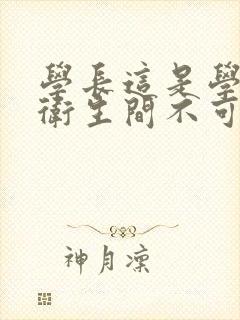 學長這是學
衛生間不可
神月凜